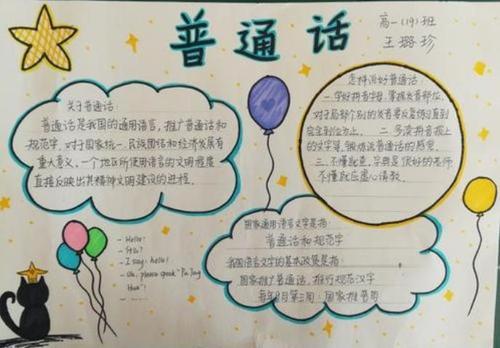 普通话
高一(19)班
王璐珍
关于普通话:
普通话是我国的通用语言,推广普通话和
规范字,对于国家统一,民族团结和经济发展有
重大意义,一个地区所使用语言的文明程度
直接反映出其精神文明建设的进程。
怎样说好普通话:
一.学好拼音字母,掌握发音部位,
对于局部个别的发音要反复练习直到
完全到位为止。二.多读拼音报上
的文字等,锻炼说普通话的感觉。
三.不懂就查,字典是很好的老师
不懂就应虚心请教。
- Hello!
- I say: hello!
- Uh, please speak "Pu Tong
Hua"!
- ......
国家通用语言文字是指:
普通话和规范字
我国语言文字的基本政策是指:
国家推广普通话,推行规范汉字
每年9月第三周:国家推普周